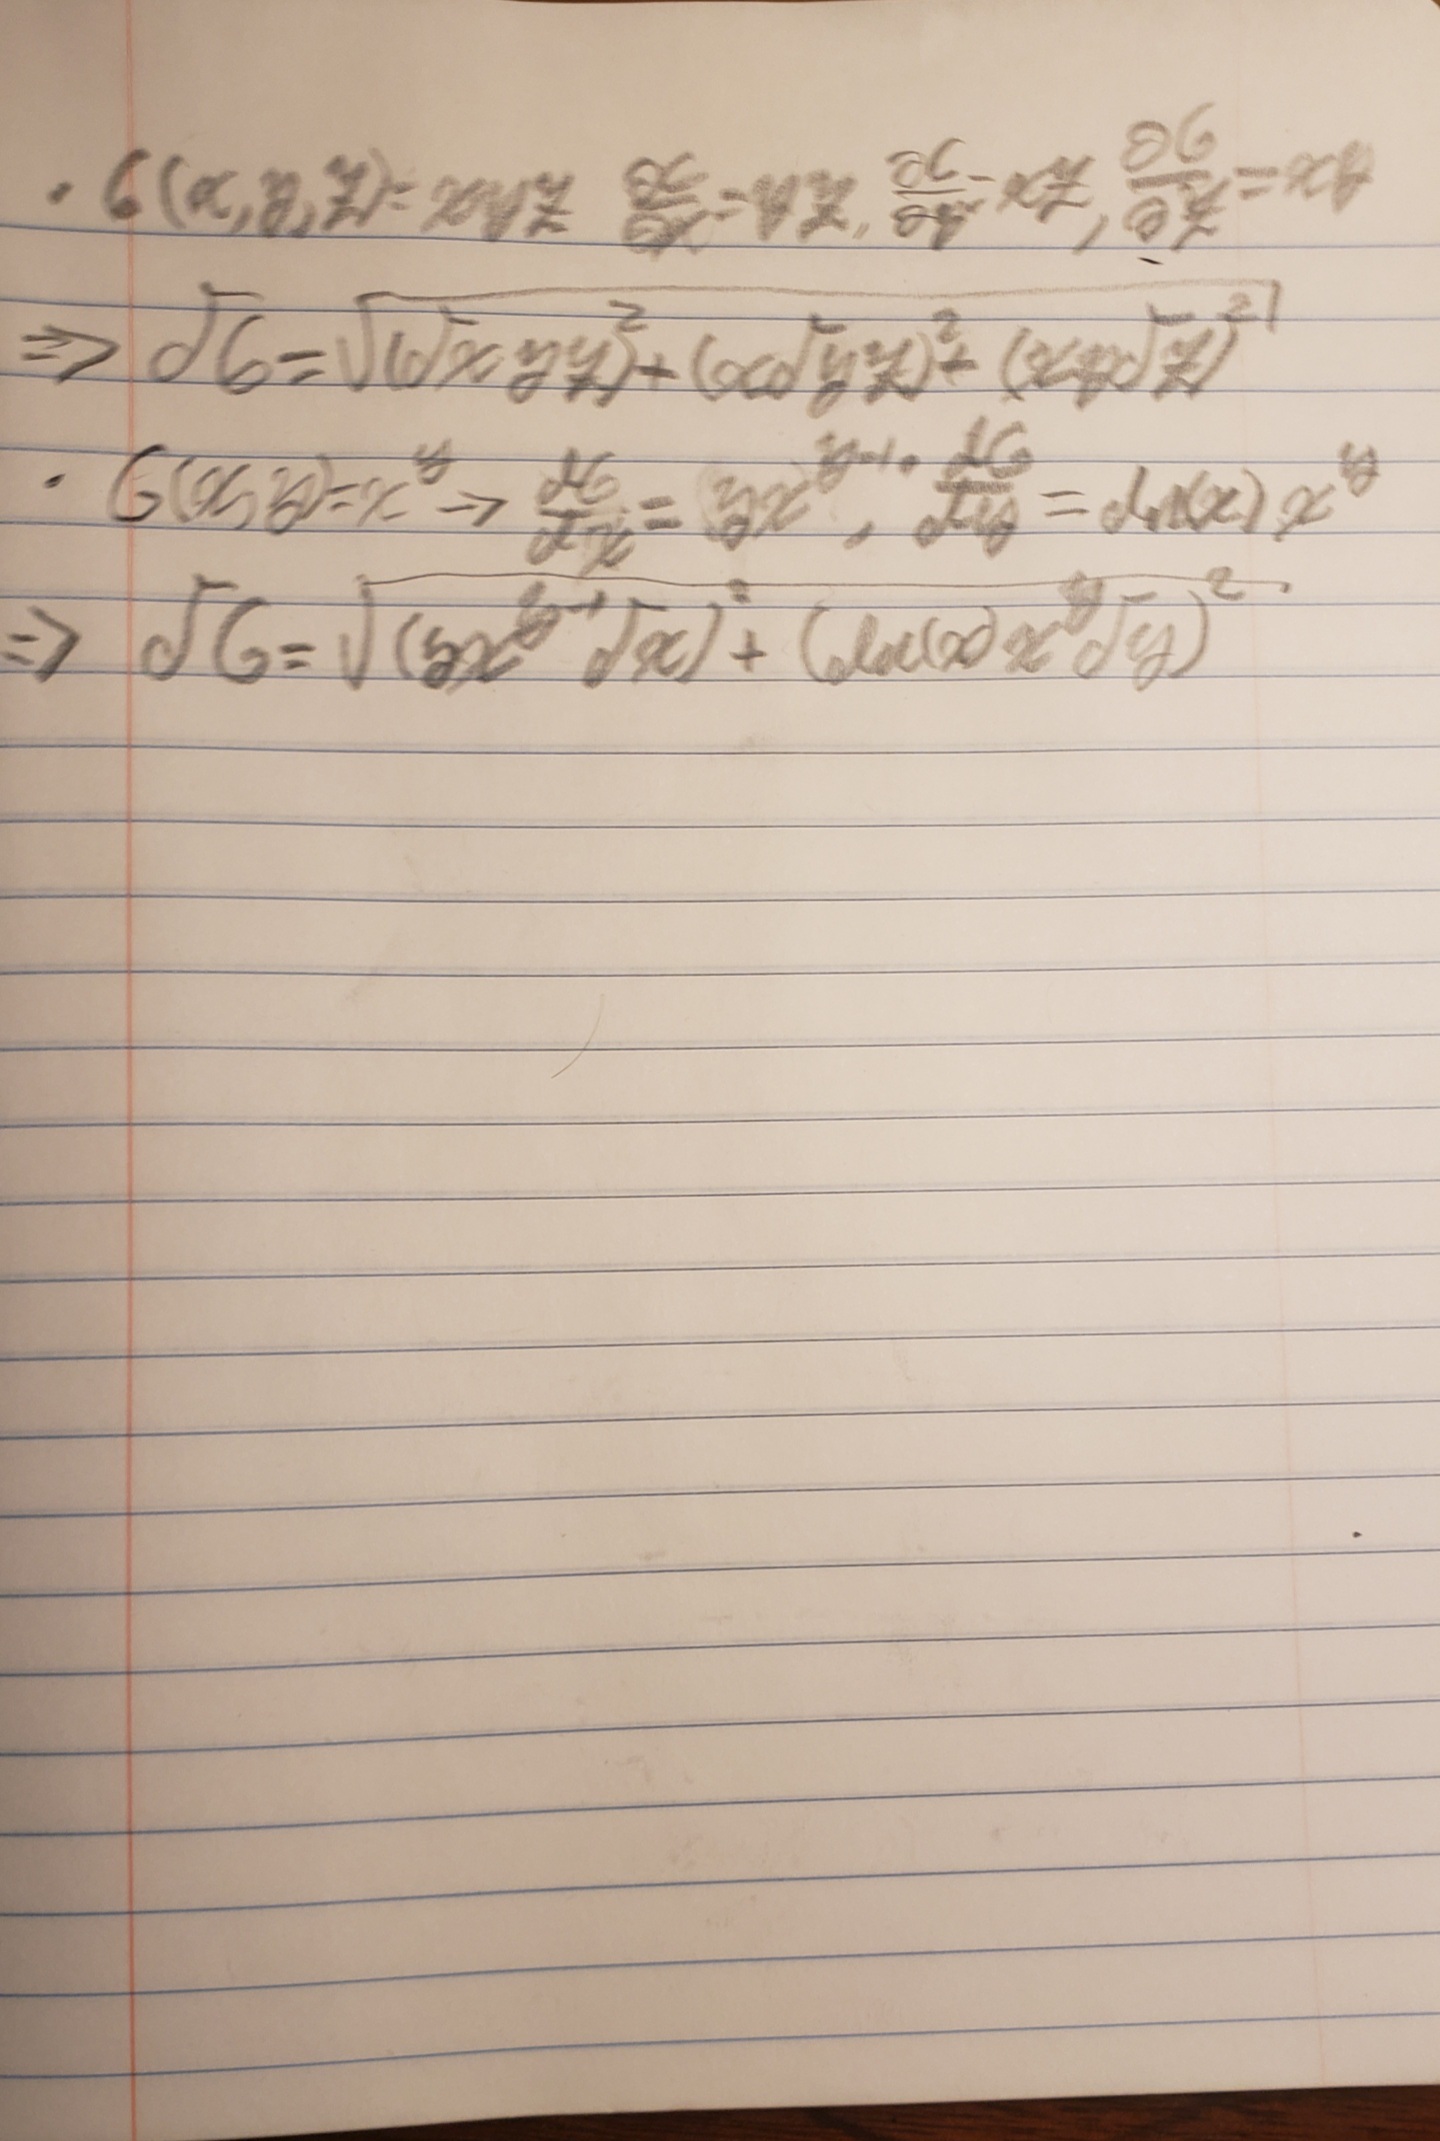 · G(x,y,z)=xyz ∂G/∂x=yz, ∂G/∂y=xz, ∂G/∂z=xy
⇒ δG=√((δxyz)²+(xδyz)²+(xyδz)²)
· G(x,y)=x^y → dG/dx=yx^(y-1), dG/dy=ln(x)x^y
⇒ δG=√((yx^(y-1)δx)²+(ln(x)x^yδy)²)